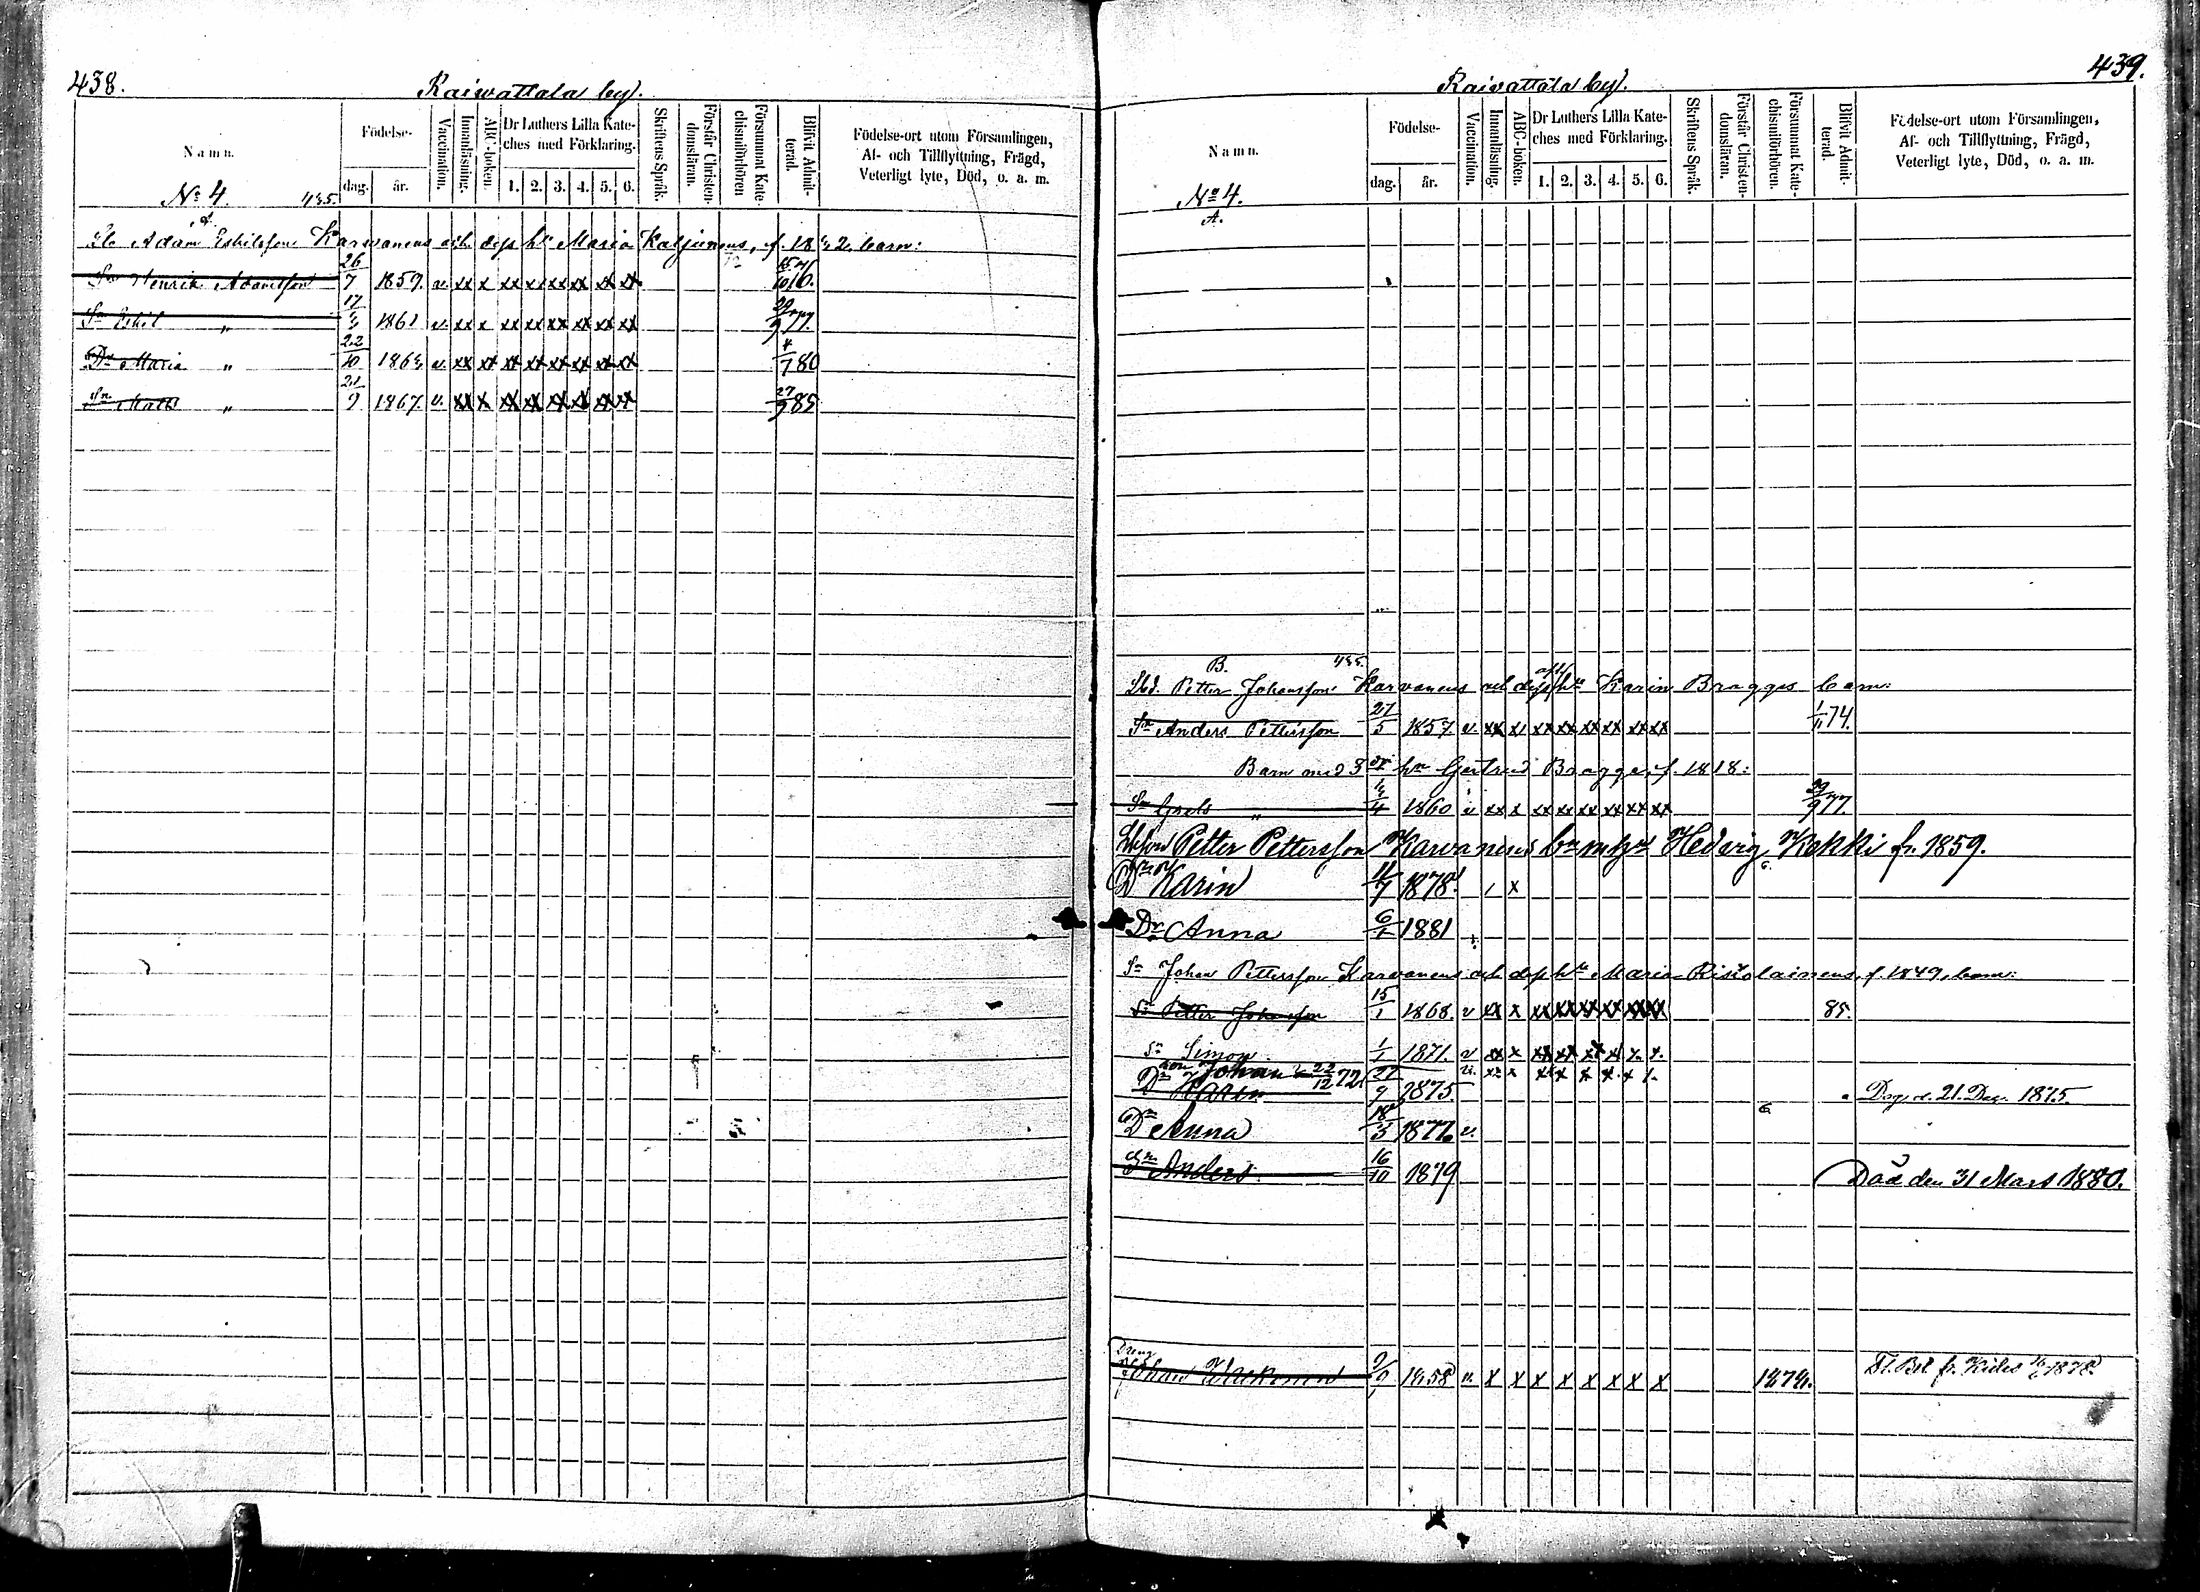 438.
Raiwattala by.
Namn.
Födelse-
dag.
år.
Vaccination.
Innanläsning.
ABC-boken.
Dr Luthers Lilla Kate-
ches med Förklaring.
1. 2. 3. 4. 5. 6.
Skriftens Språk.
Förstår Christen-
domsläran.
Försummat Kate-
chismiförhören
Blifvit Admit-
terad.
Födelse-ort utom Församlingen,
Af- och Tillflyttning, Frägd,
Veterligt lyte, Död, o. a. m.
No 4. 435.
A.
Adam Eskilsson Karwanens och dess hu Maria Kaljunens, barn:
Sn Henrik Adamsson 26/7 1859. v. xx x xx xx xx xx xx xx
Sn Eskil " 17 1861 v. xx x xx xx xx xx xx xx 29/9 77.
Dr Maria " 22/10 v. xx xx xx xx xx xx xx xx 4/7 80
Sn Matts " 21/9 1867. v. xx x xx xx xx xx xx xx 27/9 85
439.
Raivattala by.
Namn.
Födelse-
dag.
år.
Vaccination.
Innanläsning.
ABC-boken.
Dr Luthers Lilla Kate-
ches med Förklaring.
1. 2. 3. 4. 5. 6.
Skriftens Språk.
Förstår Christen-
domsläran.
Försummat Kate-
chismiförhören.
Blifvit Admit-
terad.
Födelse-ort utom Församlingen,
Af- och Tillflyttning, Frägd,
Veterligt lyte, Död, o. a. m.
No 4.
A.
B. 435.
Petter Johansson Karvanens och dess hu Karin Bragges barn:
Sn Anders Pettersson 27/5 1857. v. xx x xx xx xx xx xx xx 1/11 74.
Barn med 3 hu Gertrud Bragge, f. 1818:
Sn " 4 1860 v xx x xx xx xx xx xx xx 29/9 77.
Petter Pettersson Karvanens bn m hu Hedvig Kekki f. 1859.
Dr Karin 11/7 1878. x
Dr Anna 6/1 1881
Sn Johan Pettersson Karvanens och desshu Maria Ristolainens, f. 1849, barn:
Sn Petter Johansson 15/1 1868. v xx x xx xx xx xx xx xx 85.
Sn Simon 1/1 1871. v xx x xx xx xx xx x. x.
son Johan 22/12 72 v. xx x
Dr Karin 27/9 1875. Dog d. 21. Dec. 1875.
Dr Anna 18/3 1877 v.
Sn Anders 16/10 1879 Död den 31 Mars 1880.
Dreng
Johan 1858 v. x x x x x x x x fr. Kides 1878.